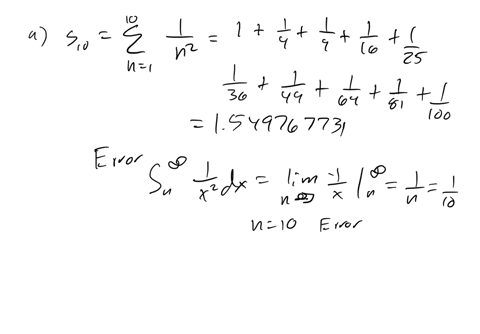 a) S₁₀ = ∑_{n=1}^{10} 1/n² = 1 + 1/4 + 1/9 + 1/16 + 1/25
1/36 + 1/49 + 1/64 + 1/81 + 1/100
= 1.549767731
Error
∫_n^∞ 1/x² dx = lim_{n→∞} -1/x |_n^∞ = 1/n = 1/10
n=10 Error